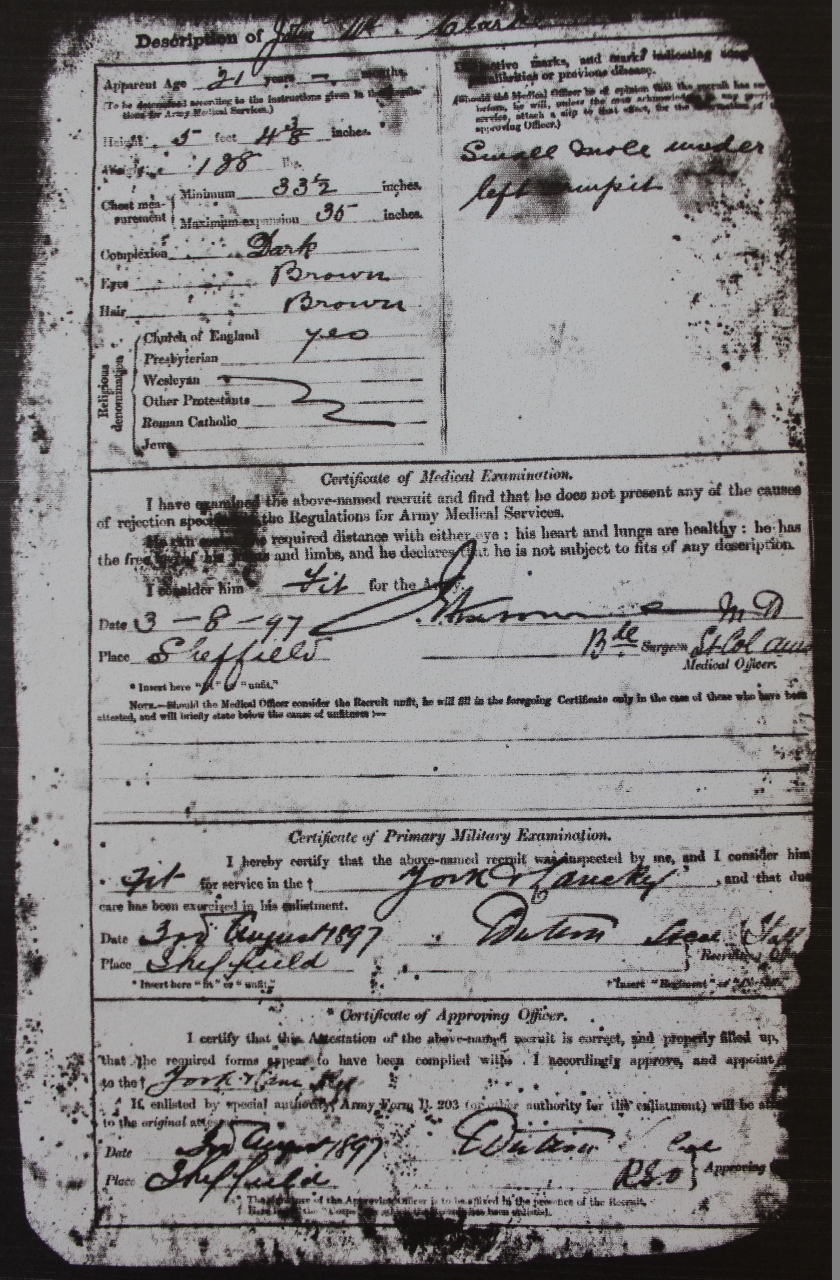 Description of John Wm. Clarke
Apparent Age 21 years — months.
(To be determined according to the instructions given in the
tions for Army Medical Services.)
Height 5 feet 4 3/8 inches.
128 lbs.
Chest mea-
surement
Minimum 33 1/2 inches.
Maximum expansion 35 inches.
Complexion Dark
Eyes Brown
Hair Brown
Religious
denomination
Church of England yes
Presbyterian
Wesleyan
Other Protestants
Roman Catholic
Jews
marks, and marks indicating
or previous disease.
(Should the Medical Officer be of opinion that the recruit has
before, he will, unless the man acknowledges to any
service, attach a slip to that effect, for the information of
approving Officer.)
Small mole under
left armpit
Certificate of Medical Examination.
I have examined the above-named recruit and find that he does not present any of the causes
of rejection the Regulations for Army Medical Services.
He can required distance with either eye; his heart and lungs are healthy; he has
the free of his and limbs, and he declares that he is not subject to fits of any description.
I consider him Fit for the Army.
Date 3 – 8 – 97 M D
Place Sheffield Bde Surgeon Lt Col
Medical Officer.
* Insert here "fit" or "unfit."
NOTE.—Should the Medical Officer consider the Recruit unfit, he will fill in the foregoing Certificate only in the case of those who have been
attested, and will briefly state below the cause of unfitness :—
Certificate of Primary Military Examination.
I hereby certify that the above-named recruit was inspected by me, and I consider him
Fit for service in the † York & Lancs , and that due
care has been exercised in his enlistment.
Date 3rd August 1897
Place Sheffield
* Insert here "fit" or "unfit." † Insert "Regiment" or
* Certificate of Approving Officer.
I certify that this Attestation of the above-named recruit is correct, and properly filled up,
that the required forms appear to have been complied with. I accordingly approve, and appoint
to the † York & Lanc
If enlisted by special authority, Army Form B. 203 (or other authority for the enlistment) will be
to the original
Date 3rd August 1897 Col
Place Sheffield Approving
* The signature of the Approving Officer is to be affixed in the presence of the Recruit.